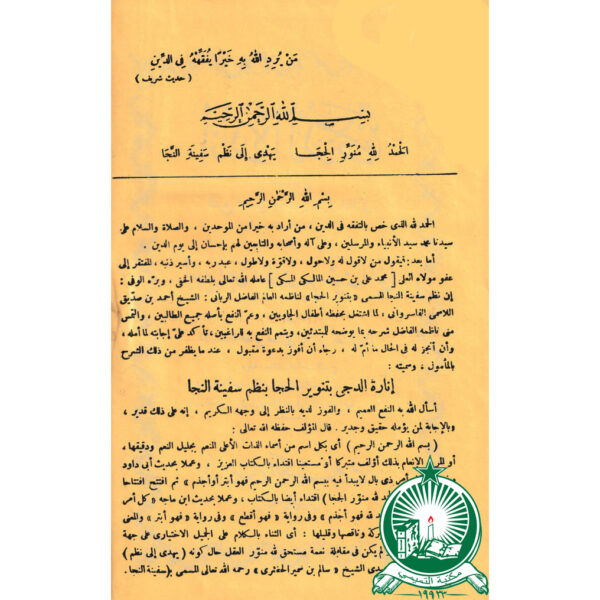 مَنْ يُرِدِ اللهُ بِهِ خَيْرًا يُفَقِّهْهُ فِى الدِّينِ
( حديث شريف )
بِسْمِ اللهِ الرَّحْمٰنِ الرَّحِيْمِ
الْحَمْدُ لِلّٰهِ مُنَوِّرِ الْحِجَا يَهْدِى إِلَى نَظْمِ سَفِينَةِ النَّجَا
بِسْمِ اللهِ الرَّحْمٰنِ الرَّحِيمِ
الحمد لله الذى خص بالتفقه فى الدين ، من أراد به خيرا من الموحدين ، والصلاة والسلام على
سيدنا محمد سيد الأنبياء والمرسلين ، وعلى آله وأصحابه والتابعين لهم بإحسان إلى يوم الدين .
أما بعد : فيقول من لاقول له ولاحول ، ولاقوّة ولاطول ، عبد ربه ، وأسير ذنبه ، المفتقر إلى
عفو مولاه العلىّ [ محمد على بن حسين المالكى المكى ] عامله الله تعالى بلطفه الخفى ، وبره الوفى :
إن نظم سفينة النجا المسمى « بتنوير الحجا » لناظمه العالم الفاضل الربانى : الشيخ أحمد بن صديق
اللاسمى الفاسروانى ، لما اشتغل بحفظه أطفال الجاويين ، وعمّ النفع بأصله جميع الطالبين ، والتمس
منى ناظمه الفاضل شرحه بما يوضحه للمبتدئين ، ويتم النفع به للراغبين ، تأكد علىّ إجابته لما أمله ،
وأن أنجز له فى الحال ما أمّ له ، رجاء أن أفوز بدعوة مقبول ، عند ما يظفر من ذلك الشرح
بالمأمول ، وسميته :
إنارة الدجى بتنوير الحجا بنظم سفينة النجا
أسأل الله به النفع العميم ، والفوز لديه بالنظر إلى وجهه الكريم ، إنه على ذلك قدير ،
وبالإجابة لمن يؤمله حقيق وجدير . قال المؤلف حفظه الله تعالى :
( بسم الله الرحمن الرحيم ) أى بكل اسم من أسماء الذات الأعلى المنعم بجليل النعم ودقيقها ،
أو المريد الإنعام بذلك أؤلف متبركا أو مستعينا اقتداء بالكتاب العزيز ، وعملا بحديث أبى داود
أمر ذى بال لايبدأ فيه ببسم الله الرحمن الرحيم فهو أبتر أو أجذم » ثم افتتح افتتاحا
لله منوّر الحجا ) اقتداء أيضا بالكتاب ، وعملا بحديث ابن ماجه « كل أمر
لله فهو أجذم » وفى رواية « فهو أقطع » وفى رواية « فهو أبتر » والمعنى
وناقصها وقليلها : أى الثناء بالكلام على الجميل الاختيارى على جهة
يكن فى مقابلة نعمة مستحق لله منوّر العقل حال كونه ( يهدى إلى نظم )
الشيخ « سالم بن سمير الحضرى » رحمه الله تعالى المسمى بـ(سفينة النجا.
مكتبة القديمى
١٩٢٣